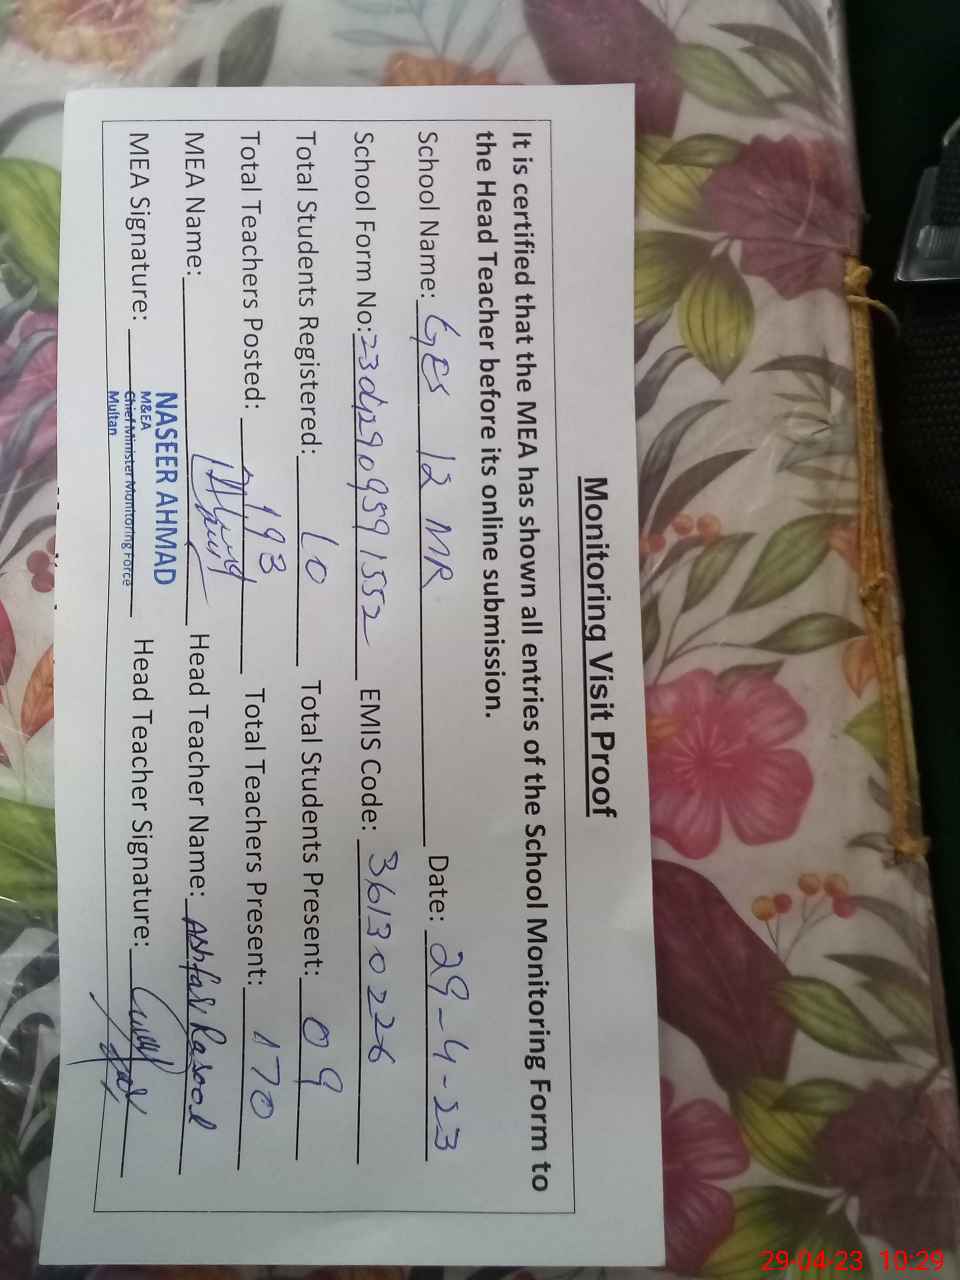 Monitoring Visit Proof
It is certified that the MEA has shown all entries of the School Monitoring Form to
the Head Teacher before its online submission.
School Name: GES 12 MR Date: 29-4-23
School Form No: 23dp909591552 EMIS Code: 36130226
Total Students Registered: 10 Total Students Present: 09
Total Teachers Posted: 193 Total Teachers Present: 170
MEA Name: Head Teacher Name: Ashfaq Rasool
MEA Signature: Head Teacher Signature:
NASEER AHMAD
M&EA
Chief Minister Monitoring Force
Multan
29-04-23 10:29